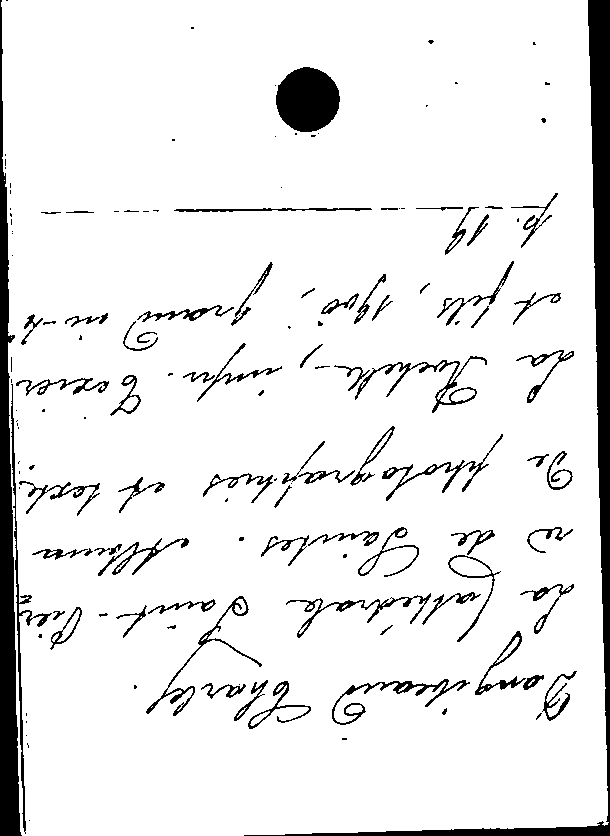 Dangibeaud Charles.
La Cathédrale Saint-Pier=
re de Saintes. Album
de photographies et texte.
La Rochelle, impr. Texier
et fils, 1900, grand in-4°
p. 19